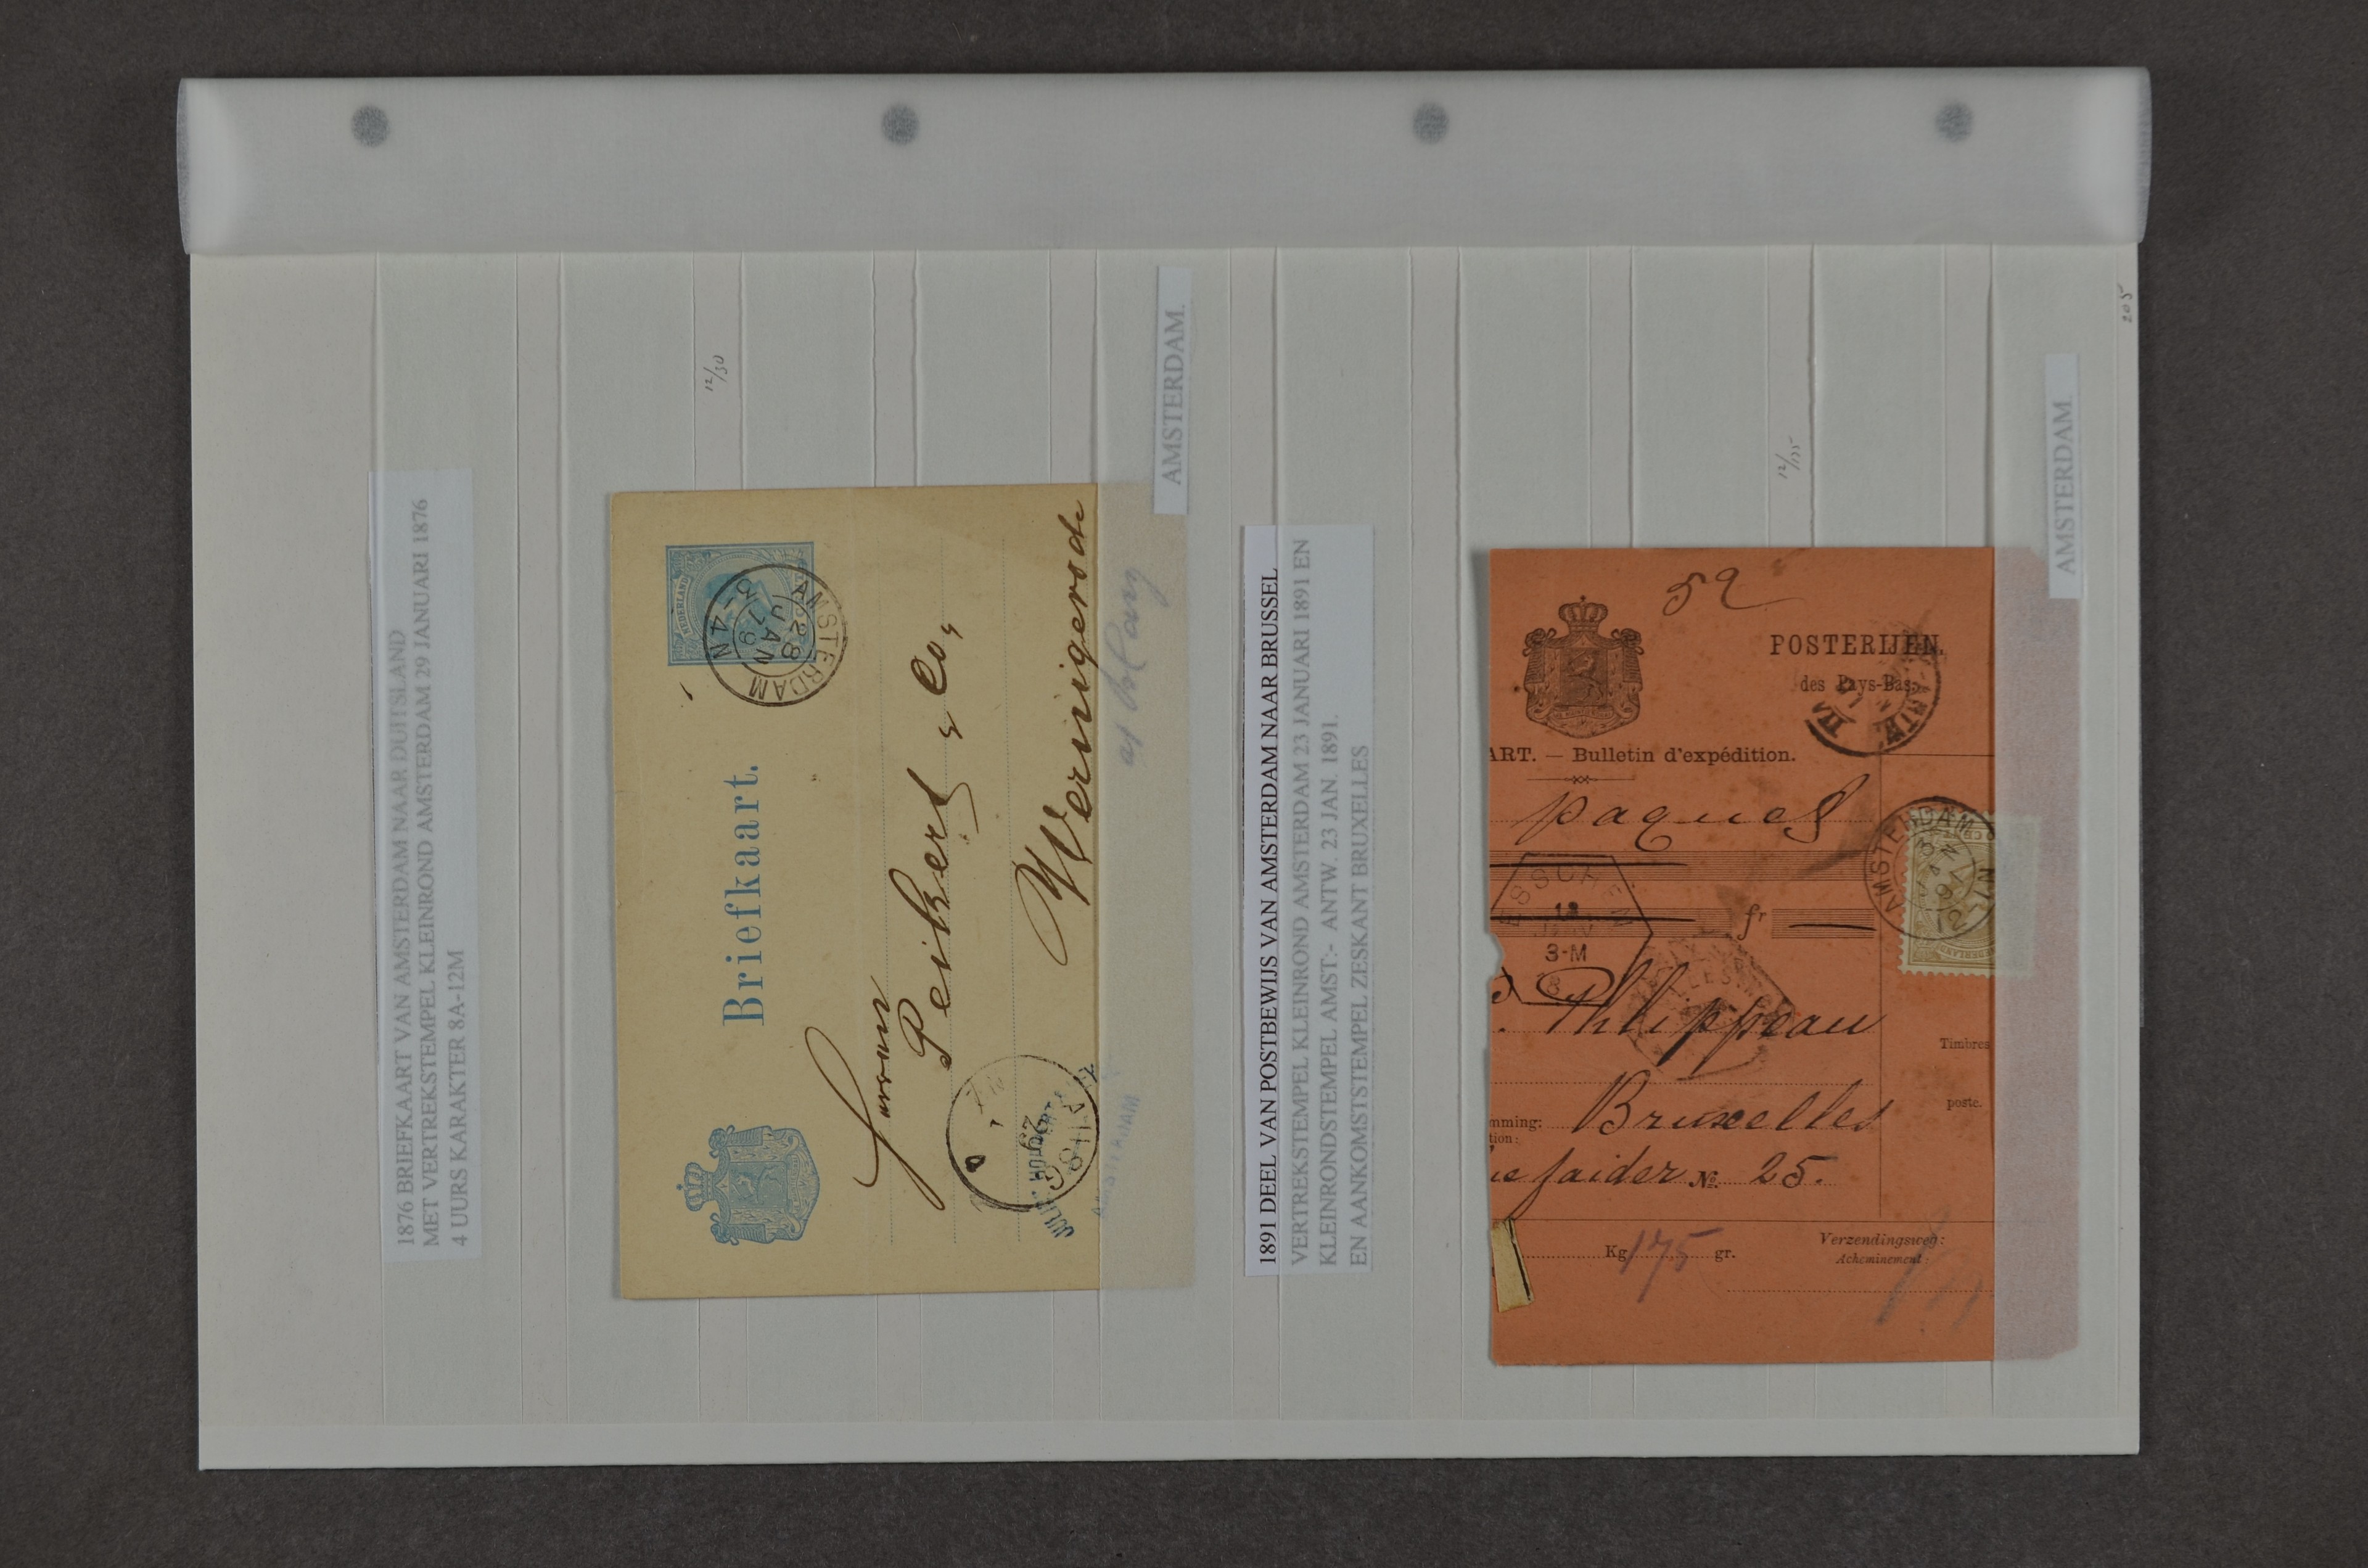 1876 BRIEFKAART VAN AMSTERDAM NAAR DUITSLAND
MET VERTREKSTEMPEL KLEINROND AMSTERDAM 29 JANUARI 1876
4 UURS KARAKTER 8A-12M
12/30
NEDERLAND
AMSTERDAM
28
JAN
79
3-4N
Briefkaart.
Herren
Peikert & Co,
Wernigerode
29
AMSTERDAM
AMSTERDAM.
1891 DEEL VAN POSTBEWIJS VAN AMSTERDAM NAAR BRUSSEL
VERTREKSTEMPEL KLEINROND AMSTERDAM 23 JANUARI 1891 EN
KLEINRONDSTEMPEL AMST:- ANTW. 23 JAN. 1891.
EN AANKOMSTSTEMPEL ZESKANT BRUXELLES
12/135
59
POSTERIJEN.
des Pays-Bas.
ART. — Bulletin d'expédition.
paquet
AMSTERDAM
ESSCHEN
3-M
fr
Philippeau
Timbres
poste.
mming:
tion:
Bruxelles
ue faider No. 25.
Kg 175 gr.
Verzendingsweg:
Acheminement:
AMSTERDAM.
205